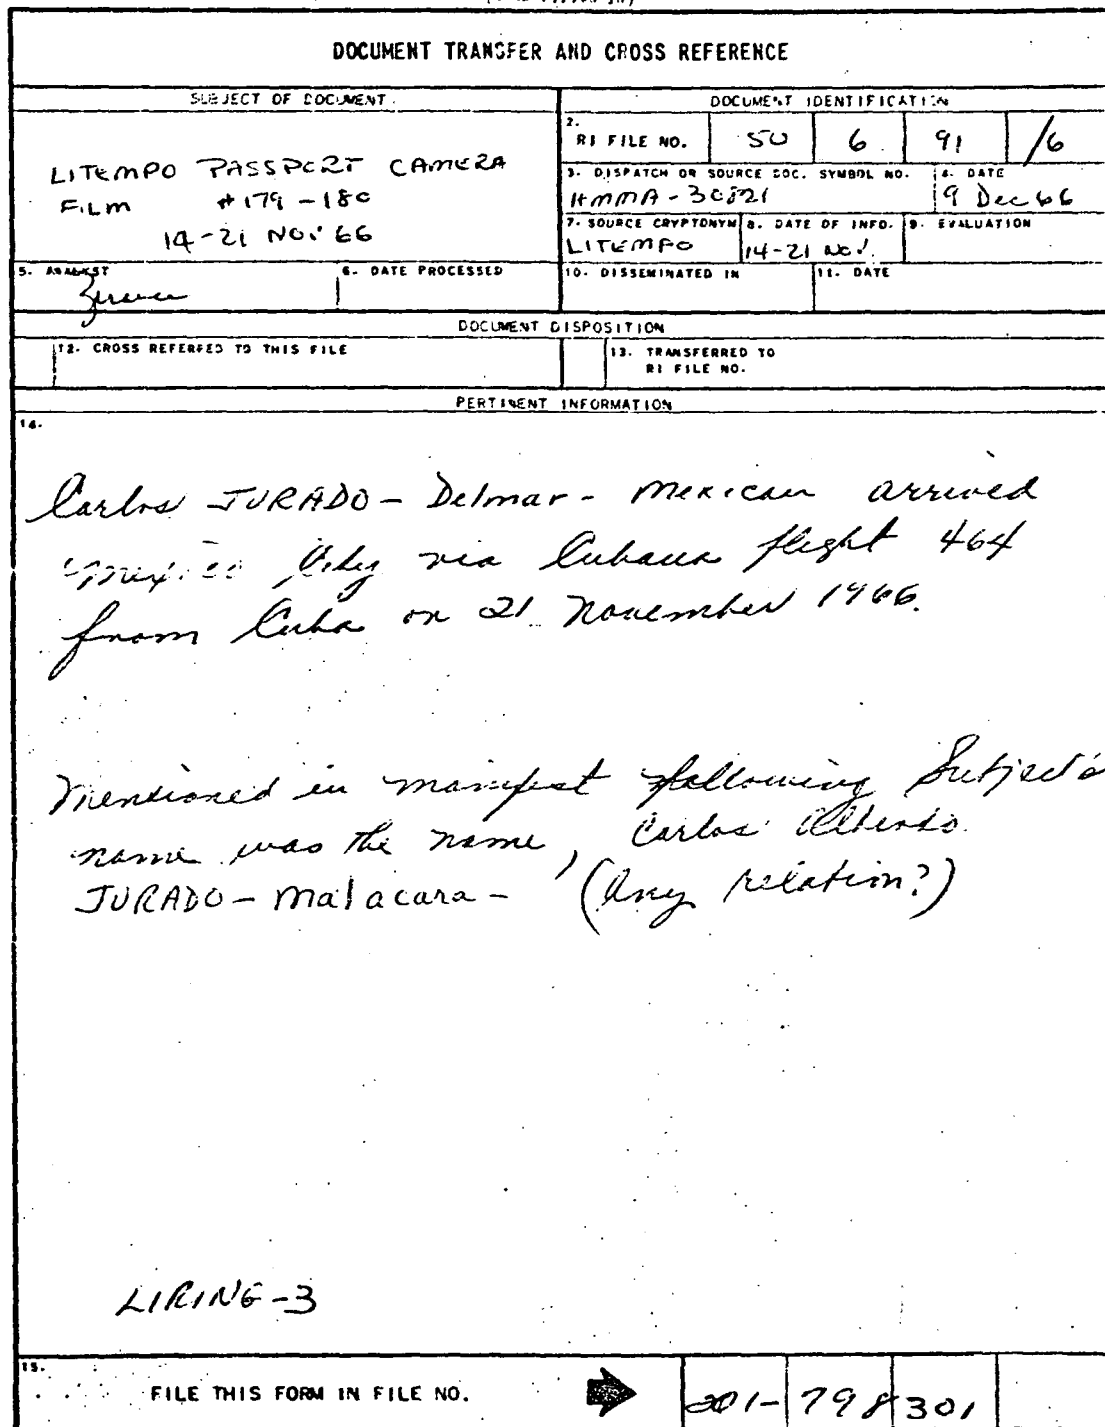 DOCUMENT TRANSFER AND CROSS REFERENCE
SUBJECT OF DOCUMENT
DOCUMENT IDENTIFICATION
LITEMPO PASSPORT CAMERA
FILM #179-180
14-21 NOV 66
2.
RI FILE NO. 50 6 91 /6
3. DISPATCH OR SOURCE DOC. SYMBOL NO. 4. DATE
HMMA-30821 9 Dec 66
7. SOURCE CRYPTONYM 8. DATE OF INFO. 9. EVALUATION
LITEMPO 14-21 Nov.
5. ANALYST 6. DATE PROCESSED 10. DISSEMINATED IN 11. DATE
DOCUMENT DISPOSITION
12. CROSS REFERRED TO THIS FILE
13. TRANSFERRED TO
RI FILE NO.
PERTINENT INFORMATION
14.
Carlos JURADO - Delmar - Mexican arrived
Mexico City via Cubana flight 464
from Cuba on 21 November 1966.
Mentioned in manifest following Subject's
name was the name, Carlos Alberto
JURADO - Malacara - (Any relation?)
LIRING-3
15.
FILE THIS FORM IN FILE NO. 201-798301